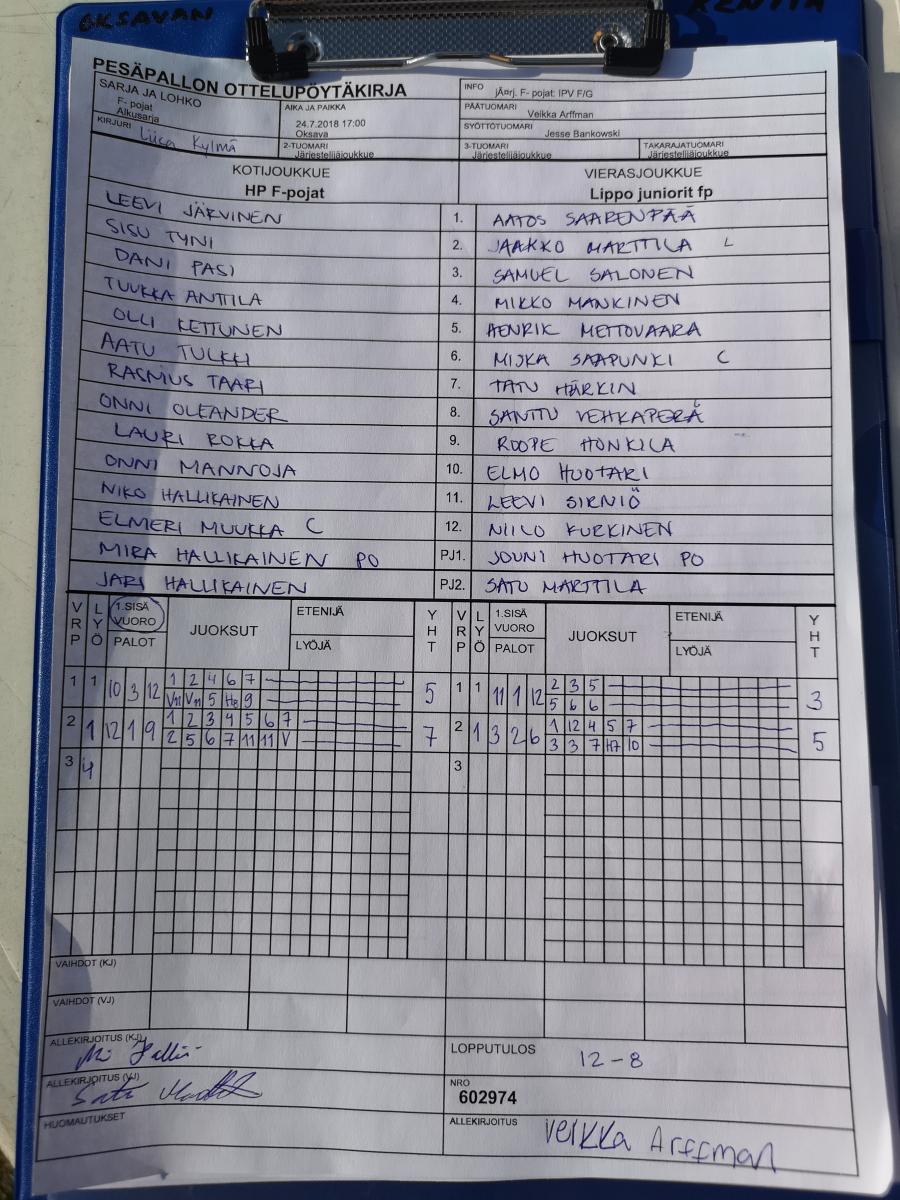 OKSAVAN KENTTÄ
PESÄPALLON OTTELUPÖYTÄKIRJA
SARJA JA LOHKO
F- pojat
Alkusarja
AIKA JA PAIKKA
24.7.2018 17:00
Oksava
INFO jÄ¤rj. F- pojat: IPV F/G
PÄÄTUOMARI
Veikka Arffman
SYÖTTÖTUOMARI
Jesse Bankowski
KIRJURI Liisa Kylmä
2-TUOMARI
Järjestelijäjoukkue
3-TUOMARI
Järjestelijäjoukkue
TAKARAJATUOMARI
Järjestelijäjoukkue
KOTIJOUKKUE VIERASJOUKKUE
HP F-pojat Lippo juniorit fp
LEEVI JÄRVINEN 1. AATOS SAARENPÄÄ
SISU TYNI 2. JAAKKO MARTTILA L
DANI PASI 3. SAMUEL SALONEN
TUUKKA ANTTILA 4. MIKKO MANKINEN
OLLI KETTUNEN 5. HENRIK METTOVAARA
AATU TULKKI 6. MISKA SAAPUNKI C
RASMUS TAARI 7. TATU HÄRKIN
ONNI OLEANDER 8. SANTTU VEHKAPERÄ
LAURI ROKKA 9. ROOPE HONKILA
ONNI MANNOJA 10. ELMO HUOTARI
NIKO HALLIKAINEN 11. LEEVI SIRNIÖ
ELMERI MUUKKA C 12. NIILO KURKINEN
MIRA HALLIKAINEN PO PJ1. JOUNI HUOTARI PO
JARI HALLIKAINEN PJ2. SATU MARTTILA
VRP LYÖ 1.SISÄ VUORO PALOT JUOKSUT ETENIJÄ LYÖJÄ YHT VRP LYÖ 1.SISÄ VUORO PALOT JUOKSUT ETENIJÄ LYÖJÄ YHT
1 1 10 3 12 1 2 4 6 7 5 1 1 11 1 12 2 3 5 3
5 H2 9 5 6 6
2 1 12 1 9 1 2 3 4 5 6 7 7 2 1 3 2 6 1 12 4 5 7 5
2 5 6 7 11 11 V 3 3 7 H7 10
3 4 3
VAIHDOT (KJ)
VAIHDOT (VJ)
ALLEKIRJOITUS (KJ)
LOPPUTULOS 12-8
ALLEKIRJOITUS (VJ)
NRO
602974
HUOMAUTUKSET
ALLEKIRJOITUS Veikka Arffman